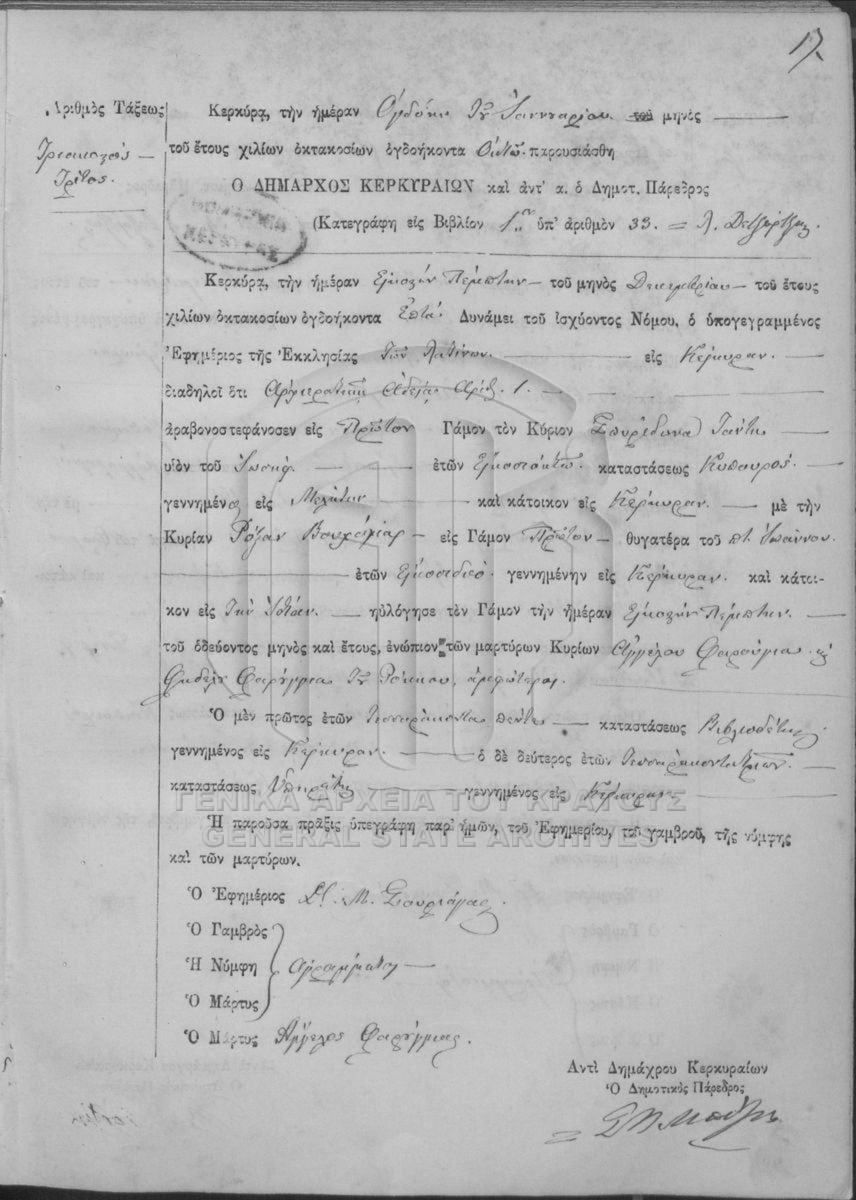 17
Ἀριθμὸς Τάξεως
Τριακοστός
Τρίτος.
Κερκύρᾳ, τὴν ἡμέραν Ὀγδόην τοῦ Ἰαννουαρίου τοῦ μηνὸς
τοῦ ἔτους χιλίων ὀκτακοσίων ὀγδοήκοντα Ὀκτὼ παρουσιάσθη
Ὁ ΔΗΜΑΡΧΟΣ ΚΕΡΚΥΡΑΙΩΝ καὶ ἀντ' α. ὁ Δημοτ. Πάρεδρος
(Κατεγράφη εἰς Βιβλίον 1ον ὑπ' ἀριθμὸν 33.
Κερκύρᾳ, τὴν ἡμέραν Εἰκοστὴν Πέμπτην τοῦ μηνὸς Δεκεμβρίου τοῦ ἔτους
χιλίων ὀκτακοσίων ὀγδοήκοντα Ἑπτά. Δυνάμει τοῦ ἰσχύοντος Νόμου, ὁ ὑπογεγραμμένος
Ἐφημέριος τῆς Ἐκκλησίας τῶν Λατίνων. εἰς Κέρκυραν.
διαδηλοῖ ὅτι Ἀρχιερατικῇ Ἀδείᾳ Ἀριθ. 1.
ἀραβονοστεφάνοσεν εἰς Πρῶτον Γάμον τὸν Κύριον Σπυρίδωνα
υἱὸν τοῦ Ἰωσὴφ ἐτῶν Εἰκοσιοκτὼ καταστάσεως Κηπουρός
γεννημένον εἰς Μελίτην καὶ κάτοικον εἰς Κέρκυραν. μὲ τὴν
Κυρίαν Ρόζαν εἰς Γάμον Πρῶτον θυγατέρα τοῦ ποτ. Ἰωάννου.
ἐτῶν Εἰκοσιδύο. γεννημένην εἰς Κέρκυραν. καὶ κάτοι-
κον εἰς Τὴν Ἰδίαν. ηὐλόγησε τὸν Γάμον τὴν ἡμέραν Εἰκοστὴν Πέμπτην.
τοῦ ὁδεύοντος μηνὸς καὶ ἔτους, ἐνώπιον τῶν μαρτύρων Κυρίων Ἀγγέλου Φαρούγια κ
Φαρούγγια τοῦ Ρόκκου, ἀμφότεροι.
Ὁ μὲν πρῶτος ἐτῶν Τεσσαράκοντα πέντε καταστάσεως Βιβλιοδέτης
γεννημένος εἰς Κέρκυραν. ὁ δὲ δεύτερος ἐτῶν Τεσσαράκοντα Τριῶν.
καταστάσεως Ὑπηρέτης γεννημένος εἰς Κέρκυραν.
ΓΕΝΙΚΑ ΑΡΧΕΙΑ ΤΟΥ ΚΡΑΤΟΥΣ
Ἡ παροῦσα πρᾶξις ὑπεγράφη παρ' ἡμῶν, τοῦ Ἐφημερίου, τοῦ γαμβροῦ, τῆς νύμφης
GENERAL STATE ARCHIVES
καὶ τῶν μαρτύρων.
Ὁ Ἐφημέριος
Ὁ Γαμβρὸς
Ἡ Νύμφη ἀγράμματοι
Ὁ Μάρτυς
Ὁ Μάρτυς Ἄγγελος Φαρούγγιας.
Αντὶ Δημάχρου Κερκυραίων
Ὁ Δημοτικὸς Πάρεδρος